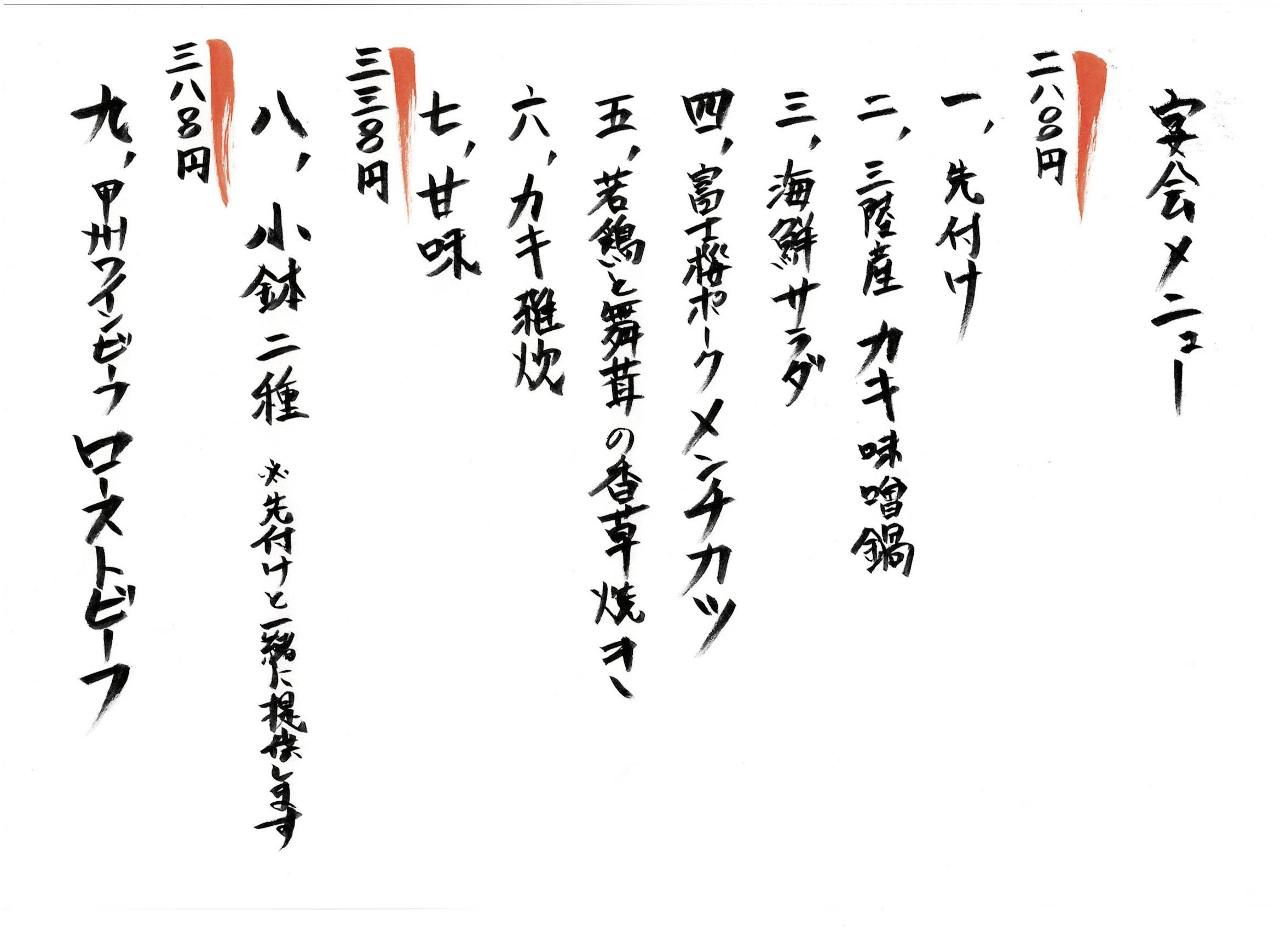 宴会メニュー
二八〇〇円
一、先付け
二、三陸産 カキ味噌鍋
三、海鮮サラダ
四、富士桜ポークメンチカツ
五、若鶏と舞茸の香草焼き
六、カキ雑炊
七、甘味
三三〇〇円
八、小鉢二種 ※先付けと一緒に提供します
三八〇〇円
九、甲州ワインビーフローストビーフ